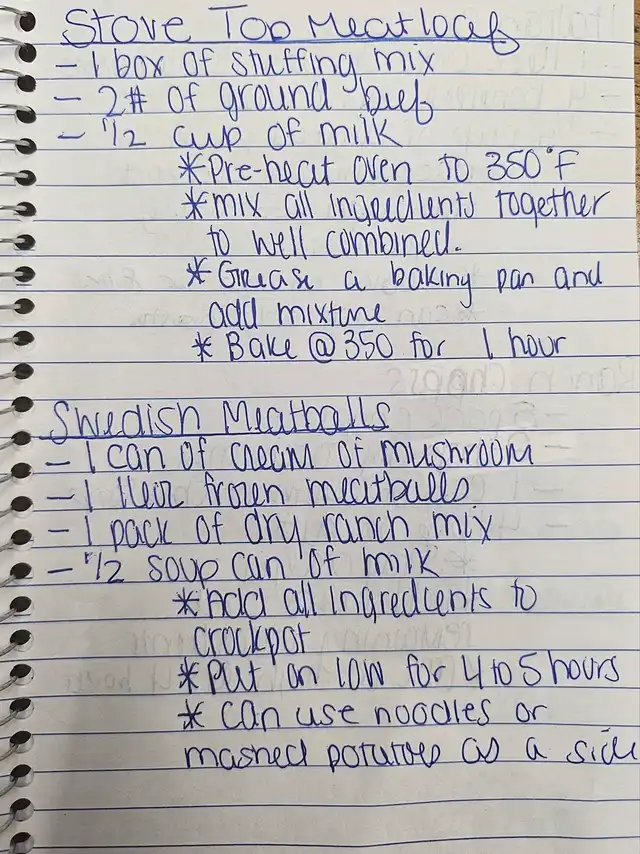 Stove Top Meatloaf
- 1 box of stuffing mix
- 2# of ground beef
- 1/2 cup of milk
*Pre-heat oven to 350°F
*mix all ingredients together
to well combined.
* Grease a baking pan and
add mixture
* Bake @ 350 for 1 hour
Swedish Meatballs
- 1 can of cream of mushroom
- 1 frozen meatballs
- 1 pack of dry ranch mix
- 1/2 soup can of milk
*Add all ingredients to
crockpot
*Put on low for 4 to 5 hours
* can use noodles or
mashed potatoes as a side